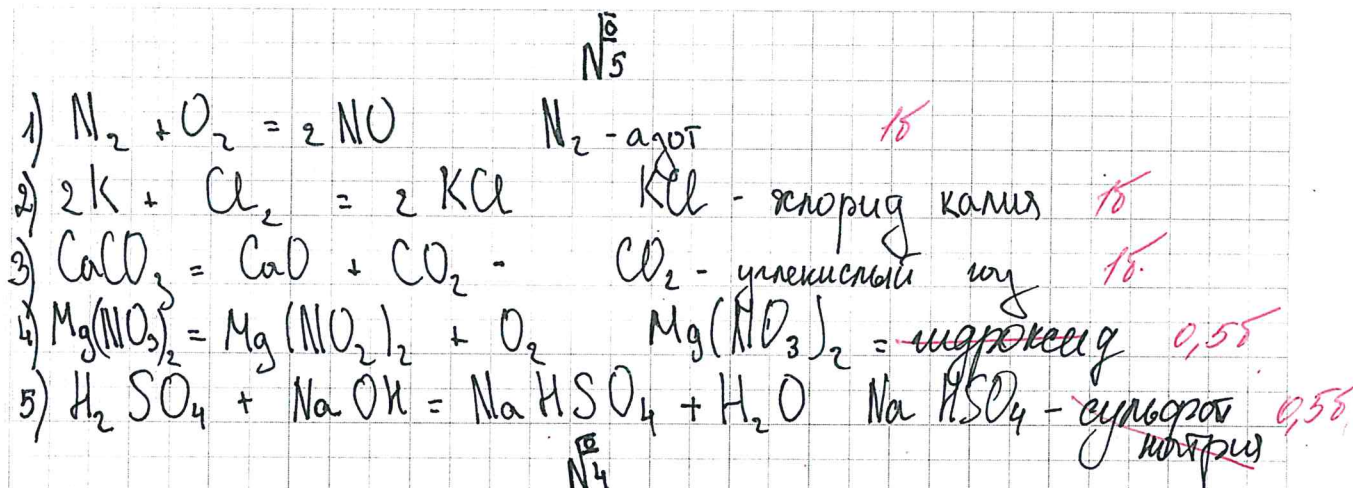 №5
1) N₂ + O₂ = 2NO N₂ - азот 1б
2) 2K + Cl₂ = 2KCl KCl - хлорид калия 1б
3) CaCO₃ = CaO + CO₂ - CO₂ - углекислый газ 1б.
4) Mg(NO₃)₂ = Mg(NO₂)₂ + O₂ Mg(NO₃)₂ = гидроксид 0,5б
5) H₂SO₄ + NaOH = NaHSO₄ + H₂O NaHSO₄ - сульфат 0,5б
натрия
№4